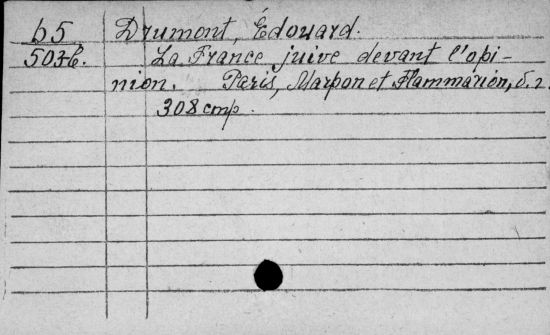 б5 Drumont, Édouard.
503б. La France juive devant l'opi-
nion. Paris, Marpon et Flammarion, б.г.
308 стр.